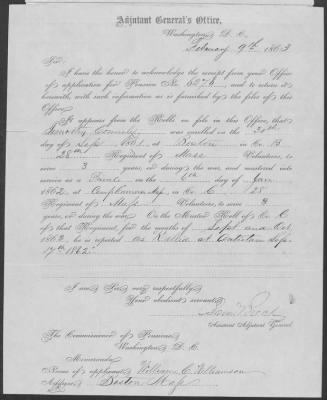 Adjutant General's Office,
Washington, D. C.
February 9th 1863
Sir:
I have the honor to acknowledge the receipt from your Office
of application for Pension No. 6276, and to return it
herewith, with such information as is furnished by the files of this
Office.
It appears from the Rolls on file in this Office, that
Timothy Connely was enrolled on the 24th
day of Sept 1861, at Boston in Co. B
28th Regiment of Mass Volunteers, to
serve 3 years, or during the war, and mustered into
service as a Private on the 6th day of Jan
1862, at Camp Cameron, in Co. C 28
Regiment of Mass Volunteers, to serve 3
years, or during the war. On the Muster Roll of Co. C
of that Regiment, for the months of Sept and Oct,
1862, he is reported as Killed at Antietam Sep.
17th 1862.
I am, Sir, very respectfully,
Your obedient servant,
Assistant Adjutant General.
The Commissioner of Pensions,
Washington, D. C.
Memoranda:
Name of applicant, William C. Williamson
Address, Boston Mass